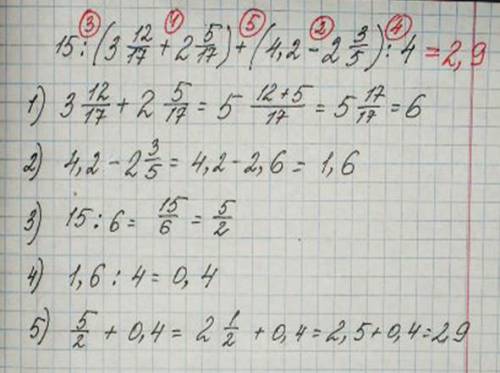 ③ ① ⑤ ② ④
15 : (3 12/17 + 2 5/17) + (4,2 - 2 3/5) : 4 = 2,9
1) 3 12/17 + 2 5/17 = 5 (12+5)/17 = 5 17/17 = 6
2) 4,2 - 2 3/5 = 4,2 - 2,6 = 1,6
3) 15 : 6 = 15/6 = 5/2
4) 1,6 : 4 = 0,4
5) 5/2 + 0,4 = 2 1/2 + 0,4 = 2,5 + 0,4 = 2,9